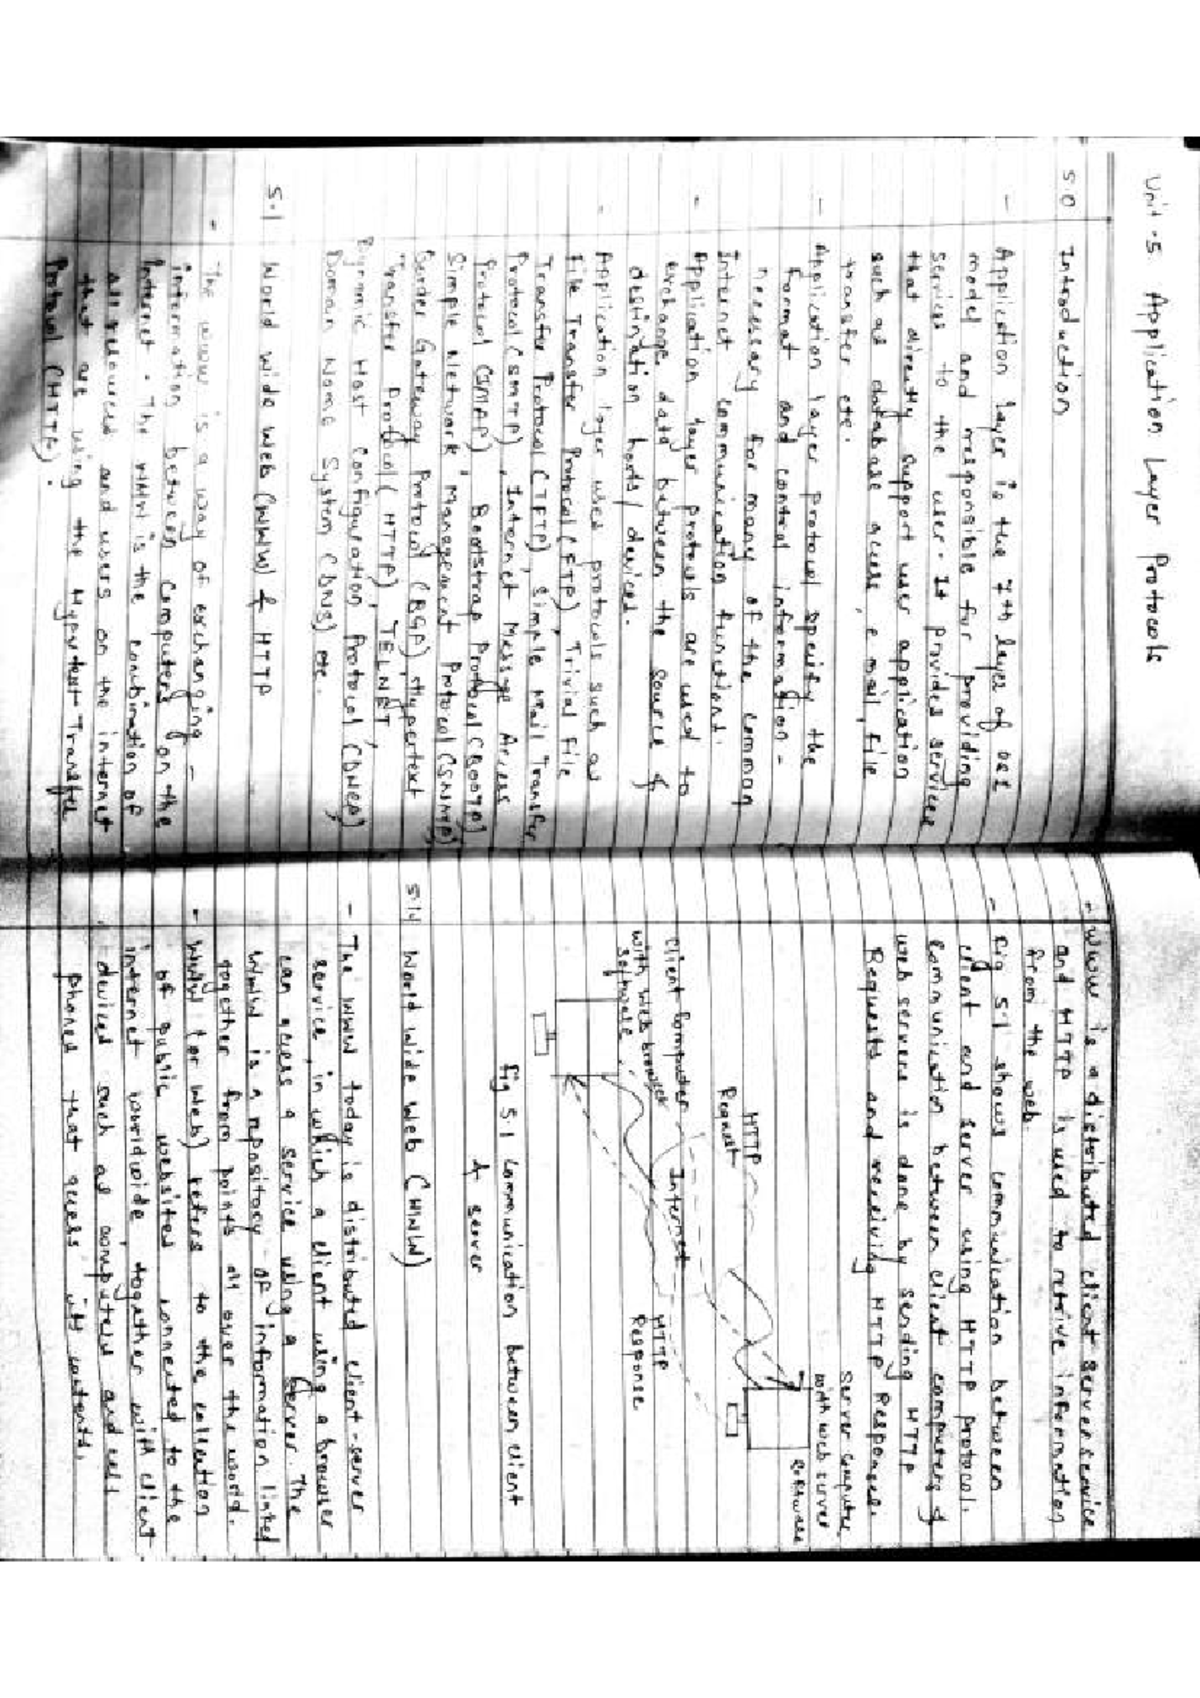 Unit-5 Application Layer Protocols
5.0 Introduction
- Application layer is the 7th layer of OSI
model and responsible for providing
services to the user. It provides services
that directly support user application
such as database access, e mail, file
transfer etc.
- Application layer protocol specify the
Format and control information -
necessary for many of the common
Internet communication functions.
- Application layer protocols are used to
exchange data between the source &
destination hosts / devices.
- Application layer uses protocols such as
File Transfer Protocol (FTP), Trivial File
Transfer Protocol (TFTP), Simple Mail Transfer
Protocol (SMTP), Internet Message Access
Protocol (IMAP), Bootstrap Protocol (BOOTP)
Simple Network Management Protocol (SNMP)
Border Gateway Protocol (BGP), Hypertext
Transfer Protocol (HTTP), TELNET,
Dynamic Host Configuration Protocol (DHCP),
Domain Name System (DNS) etc.
5.1 World wide web (WWW) & HTTP
- The WWW is a way of exchanging -
information between computers on the
Internet. The WWW is the combination of
all resources and users on the internet
that are using the Hypertext Transfer
Protocol (HTTP).
- WWW is a distributed client server service
and HTTP is used to retrive information
from the web.
- Fig 5.1 shows communication between
client and server using HTTP protocol.
Communication between client computers &
web servers is done by sending HTTP
Requests and receiving HTTP Responses.
Server computer
with web server
software
HTTP
Request
Internet
Client Computer
with web browser
software
HTTP
Response
fig 5.1 Communication between client
& server
World wide web (WWW)
- The WWW today is distributed client-server
service, in which a client using a browser
can access a service using a server. The
WWW is a repository of information linked
together from points all over the world.
- WWW (or web) refers to the collection
of public websites connected to the
internet worldwide, together with client
devices such as computers and cell
phones that access its contents.